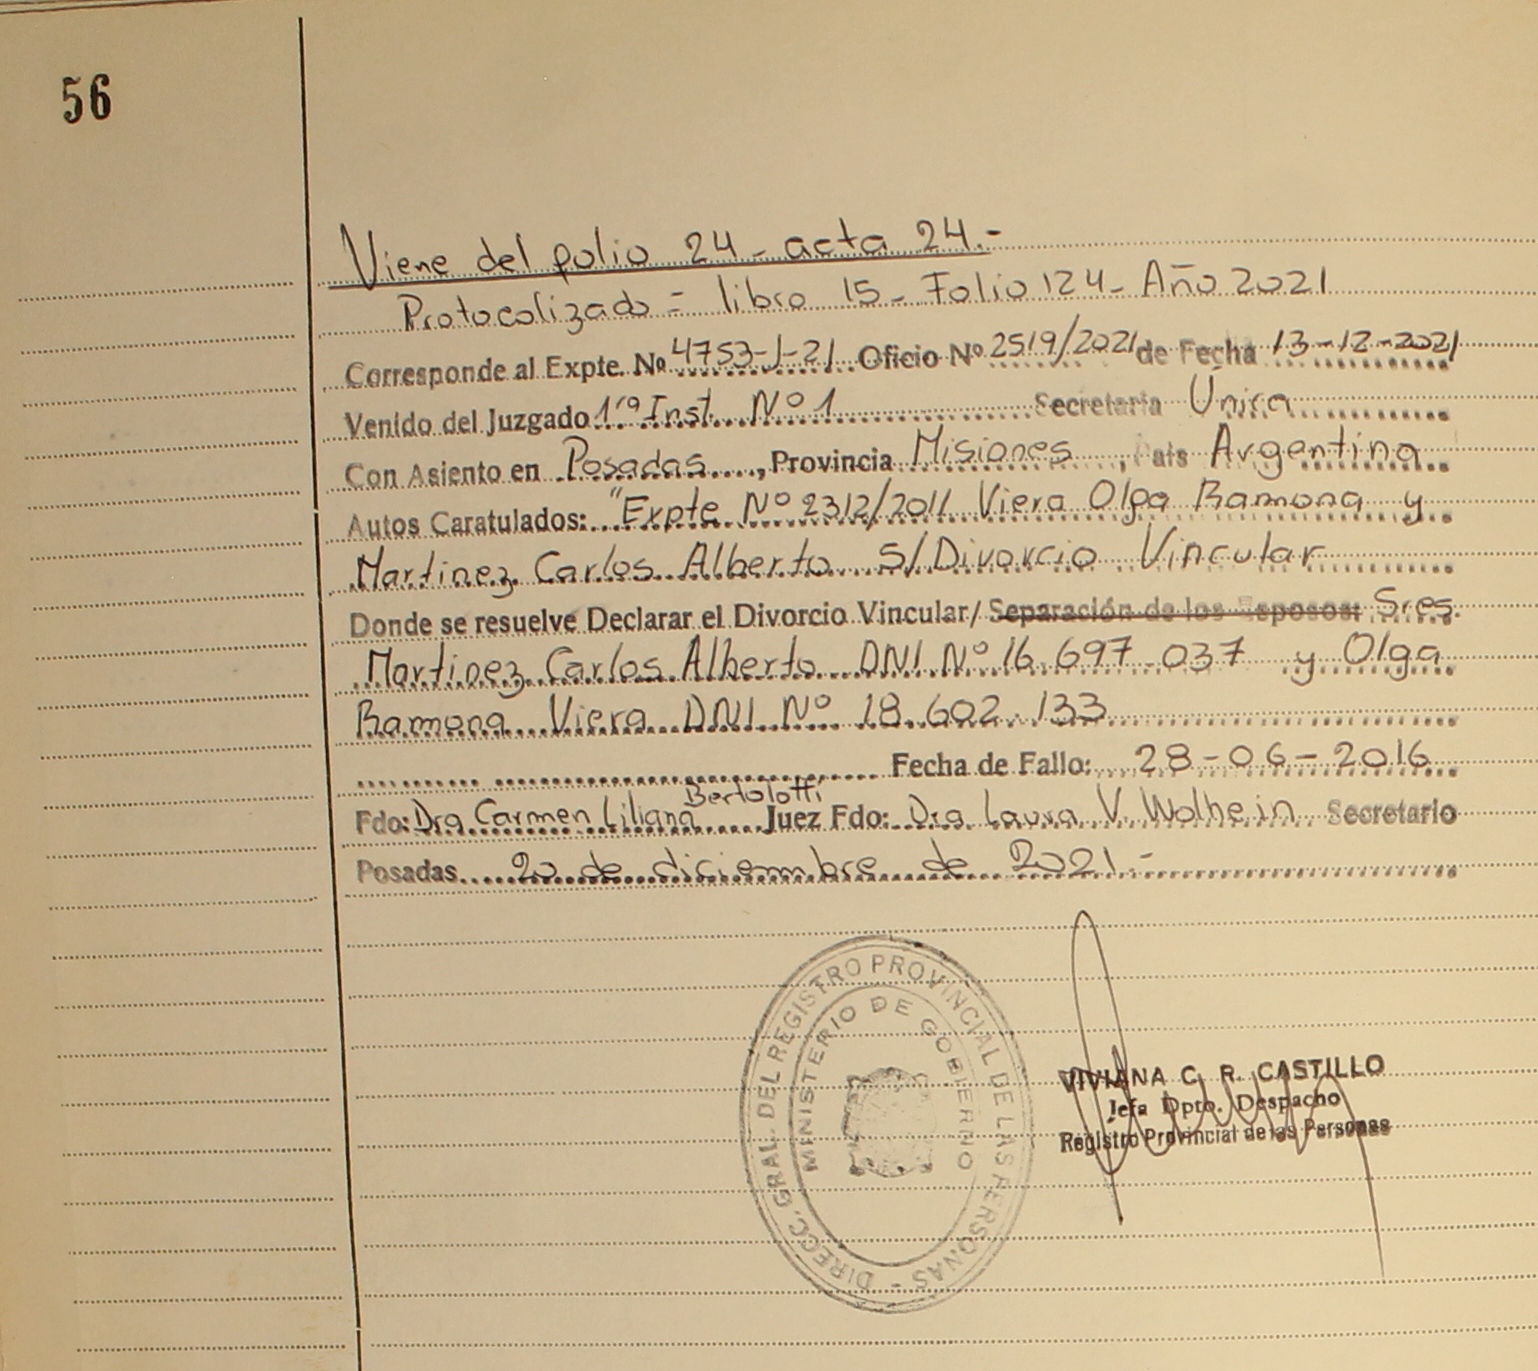 56
Viene del folio 24 - acta 24.-
Protocolizado = libro 15 - Folio 124 - Año 2021
Corresponde al Expte. Nº 4753-J-21 Oficio Nº 2519/2021 de Fecha 13-12-2021
Venido del Juzgado 1ra Inst. Nº 1 Secretaria Única
Con Asiento en Posadas, Provincia Misiones, Pais Argentina
Autos Caratulados: "Expte Nº 2312/2011 Viera Olga Ramona y
Martinez Carlos Alberto S/Divorcio Vincular
Donde se resuelve Declarar el Divorcio Vincular/ Separación de los Esposos: Sres.
Martinez Carlos Alberto DNI Nº 16.697.037 y Olga
Ramona Viera DNI Nº 18.602.133
Fecha de Fallo: 28-06-2016
Fdo: Dra Carmen Liliana Bertolotti Juez Fdo: Dra Laura V. Wolhein Secretario
Posadas 20 de diciembre de 2021.-
DIRECC. GRAL. DEL REGISTRO PROVINCIAL DE LAS PERSONAS -
MINISTERIO DE GOBIERNO
VIVIANA C. R. CASTILLO
Jefa Dpto. Despacho
Registro Provincial de las Personas